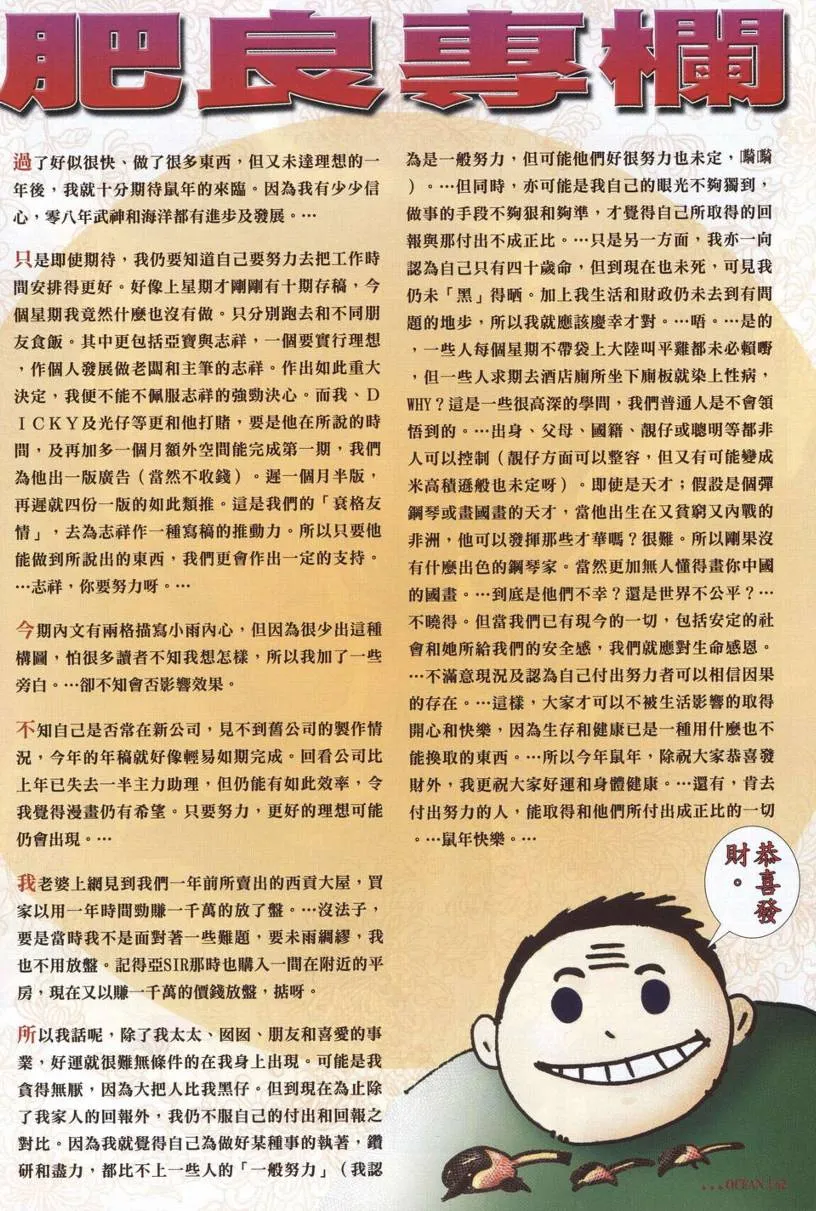 肥良專欄
過了好似很快、做了很多東西，但又未達理想的一
年後，我就十分期待鼠年的來臨。因為我有少少信
心，零八年武神和海洋都有進步及發展。…
只是即使期待，我仍要知道自己要努力去把工作時
間安排得更好。好像上星期才剛剛有十期存稿，今
個星期我竟然什麼也沒有做。只分別跑去和不同朋
友食飯。其中更包括亞寶與志祥，一個要實行理想
，作個人發展做老闆和主筆的志祥。作出如此重大
決定，我便不能不佩服志祥的強勁決心。而我、D
ICKY及光仔等更和他打賭，要是他在所說的時
間，及再加多一個月額外空間能完成第一期，我們
為他出一版廣告（當然不收錢）。遲一個月半版，
再遲就四份一版的如此類推。這是我們的「衰格友
情」，去為志祥作一種寫稿的推動力。所以只要他
能做到所說出的東西，我們更會作出一定的支持。
…志祥，你要努力呀。…
今期內文有兩格描寫小雨內心，但因為很少出這種
構圖，怕很多讀者不知我想怎樣，所以我加了一些
旁白。…卻不知會否影響效果。
不知自己是否常在新公司，見不到舊公司的製作情
況，今年的年稿就好像輕易如期完成。回看公司比
上年已失去一半主力助理，但仍能有如此效率，令
我覺得漫畫仍有希望。只要努力，更好的理想可能
仍會出現。…
我老婆上網見到我們一年前所賣出的西貢大屋，買
家以用一年時間勁賺一千萬的放了盤。…沒法子，
要是當時我不是面對著一些難題，要未雨綢繆，我
也不用放盤。記得亞SIR那時也購入一間在附近的平
房，現在又以賺一千萬的價錢放盤，掂呀。
所以我話呢，除了我太太、囡囡、朋友和喜愛的事
業，好運就很難無條件的在我身上出現。可能是我
貪得無厭，因為大把人比我黑仔。但到現在為止除
了我家人的回報外，我仍不服自己的付出和回報之
對比。因為我就覺得自己為做好某種事的執著，鑽
研和盡力，都比不上一些人的「一般努力」（我認
為是一般努力，但可能他們好很努力也未定，嘞嘞
）。…但同時，亦可能是我自己的眼光不夠獨到，
做事的手段不夠狠和夠準，才覺得自己所取得的回
報與那付出不成正比。…只是另一方面，我亦一向
認為自己只有四十歲命，但到現在也未死，可見我
仍未「黑」得晒。加上我生活和財政仍未去到有問
題的地步，所以我就應該慶幸才對。…唔。…是的
，一些人每個星期不帶袋上大陸叫平雞都未必賴嘢
，但一些人求期去酒店廁所坐下廁板就染上性病，
WHY？這是一些很高深的學問，我們普通人是不會領
悟到的。…出身、父母、國籍、靚仔或聰明等都非
人可以控制（靚仔方面可以整容，但又有可能變成
米高積遜般也未定呀）。即使是天才；假設是個彈
鋼琴或畫國畫的天才，當他出生在又貧窮又內戰的
非洲，他可以發揮那些才華嗎？很難。所以剛果沒
有什麼出色的鋼琴家。當然更加無人懂得畫你中國
的國畫。…到底是他們不幸？還是世界不公平？…
不曉得。但當我們已有現今的一切，包括安定的社
會和她所給我們的安全感，我們就應對生命感恩。
…不滿意現況及認為自己付出努力者可以相信因果
的存在。…這樣，大家才可以不被生活影響的取得
開心和快樂，因為生存和健康已是一種用什麼也不
能換取的東西。…所以今年鼠年，除祝大家恭喜發
財外，我更祝大家好運和身體健康。…還有，肯去
付出努力的人，能取得和他們所付出成正比的一切
。…鼠年快樂。…
恭喜發
財。